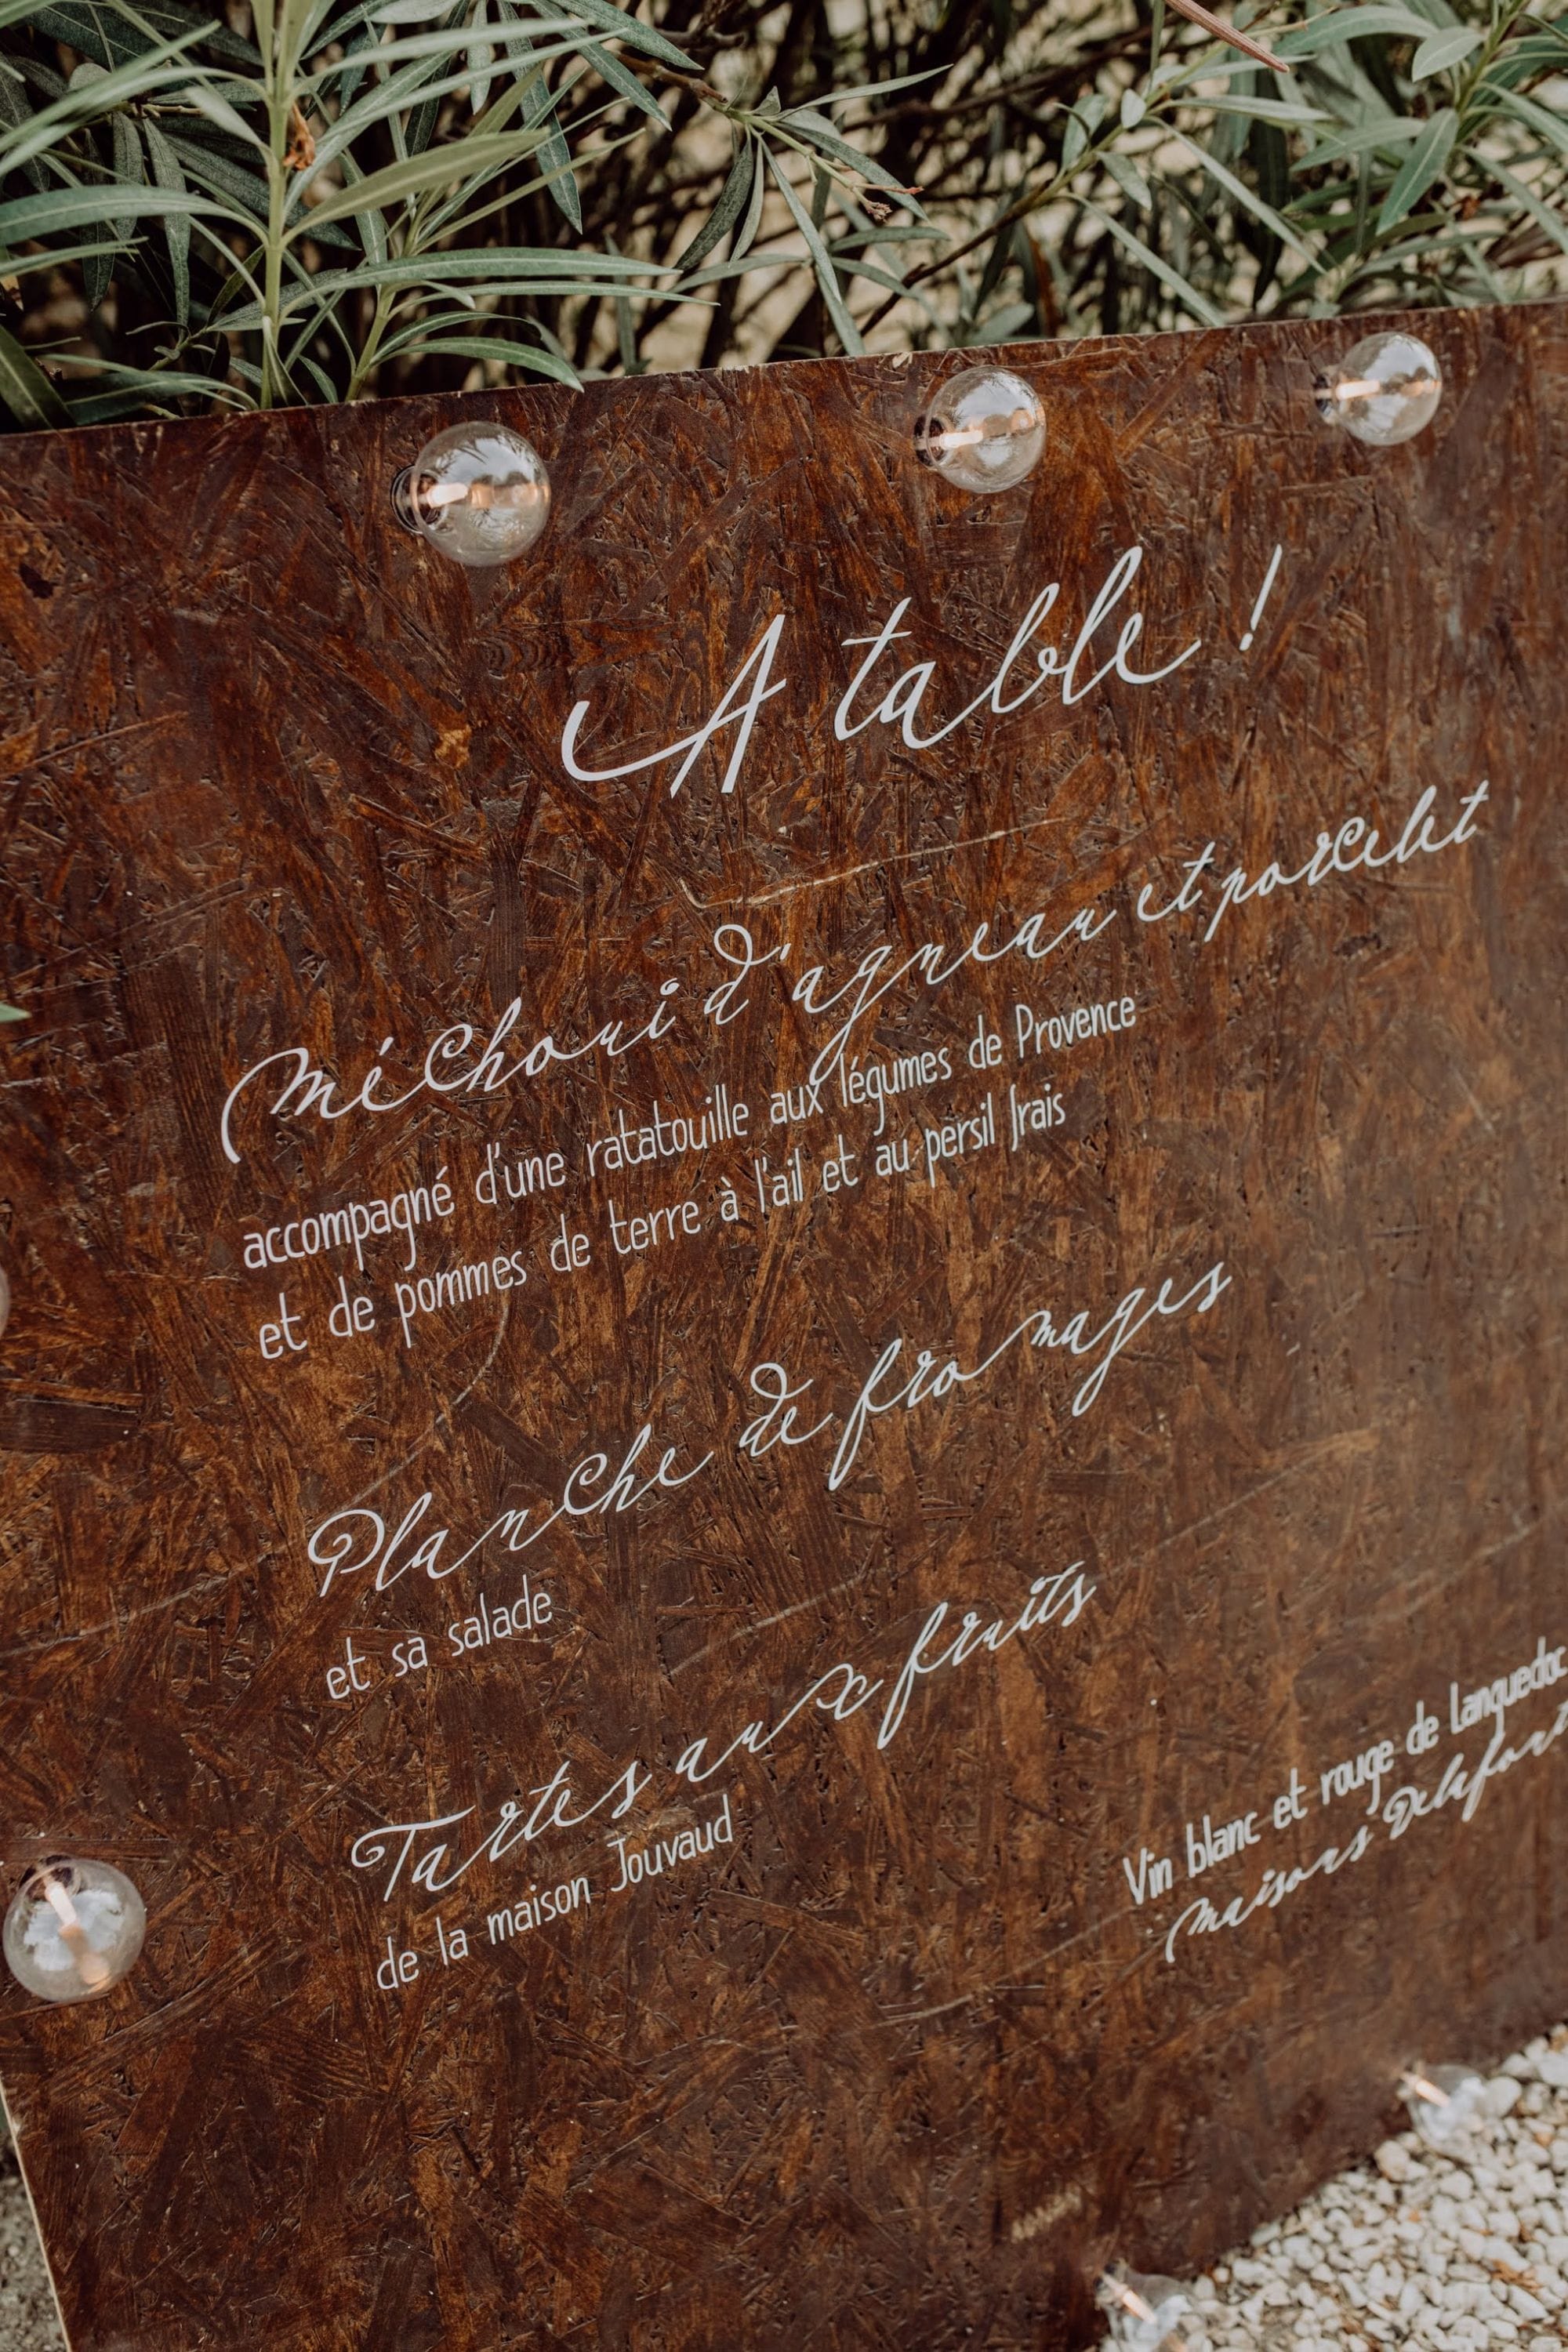 A table !
Méchoui d'agneau et porcelet
accompagné d'une ratatouille aux légumes de Provence
et de pommes de terre à l'ail et au persil frais
Planche de fromages
et sa salade
Tartes aux fruits
de la maison Jouvaud
Vin blanc et rouge de Languedoc
maisons